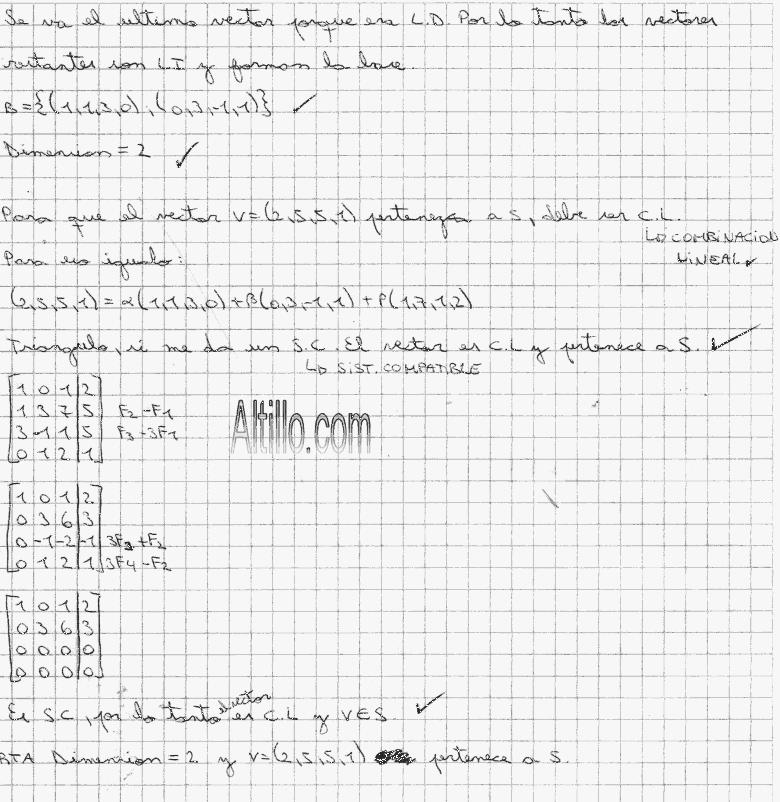 Se va el ultimo vector porque era L.D. Por lo tanto los vectores
restantes son L.I y forman la base.
B={(1,1,3,0),(0,3,-1,1)} ✓
Dimension = 2 ✓
Para que el vector V=(2,5,5,1) pertenezca a S, debe ser C.L.
↳ COMBINACION
LINEAL ✓
Para eso igualo:
(2,5,5,1) = α(1,1,3,0)+β(0,3,-1,1)+P(1,7,1,2)
Triangulo, si me da un S.C. El vector es C.L y pertenece a S. ✓
↳ SIST. COMPATIBLE
1 0 1 | 2
1 3 7 | 5 F2 - F1
3 -1 1 | 5 F3 - 3F1
0 1 2 | 1
Altillo.com
1 0 1 | 2
0 3 6 | 3
0 -1 -2 | -1 3F3 + F2
0 1 2 | 1 3F4 - F2
1 0 1 | 2
0 3 6 | 3
0 0 0 | 0
0 0 0 | 0
Es SC, por lo tanto el vector es C.L y V∈S. ✓
RTA Dimension = 2 y V=(2,5,5,1) pertenece a S.